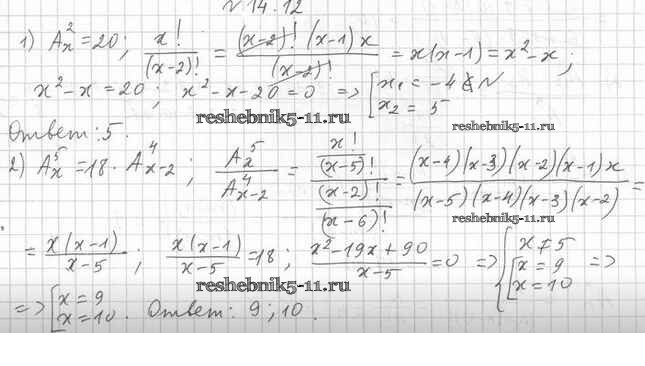 № 14.12
1) A_x^2 = 20; x!/(x-2)! = (x-2)!(x-1)x/(x-2)! = x(x-1) = x²-x;
x²-x = 20; x²-x-20 = 0 => [x₁ = -4 ∉ N
x₂ = 5
reshebnik5-11.ru reshebnik5-11.ru
Ответ: 5.
2) A_x^5 = 18 · A_{x-2}^4; A_x^5/A_{x-2}^4 = (x!/(x-5)!)/((x-2)!/(x-6)!) = (x-4)(x-3)(x-2)(x-1)x/(x-5)(x-4)(x-3)(x-2) =
reshebnik5-11.ru
= x(x-1)/(x-5); x(x-1)/(x-5) = 18; (x²-19x+90)/(x-5) = 0 => {x ≠ 5
[x = 9
x = 10 =>
reshebnik5-11.ru
=> [x = 9
x = 10. Ответ: 9; 10.